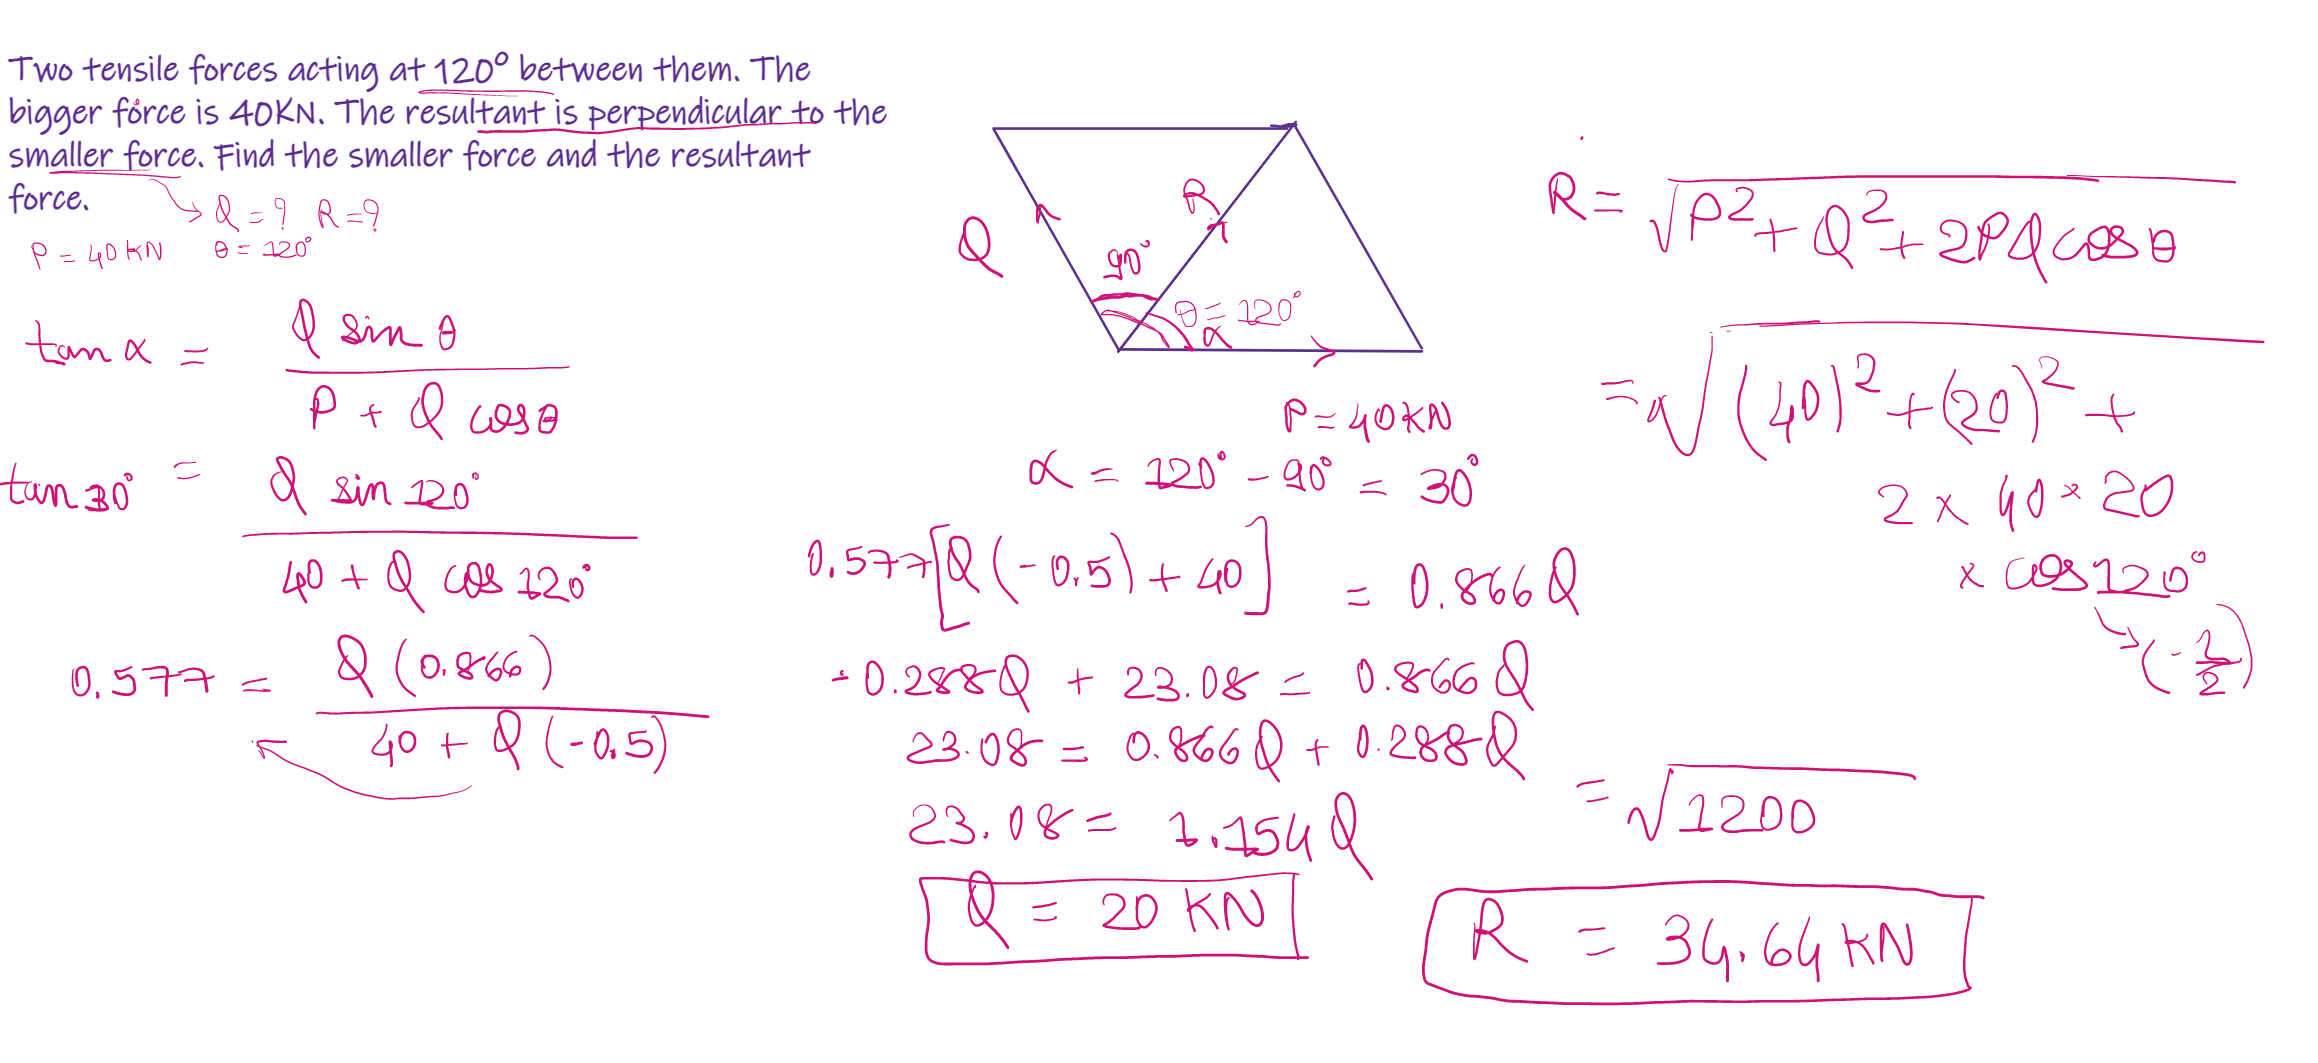 Two tensile forces acting at 120° between them. The
bigger force is 40KN. The resultant is perpendicular to the
smaller force. Find the smaller force and the resultant
force.
Q = ? R = ?
P = 40 KN θ = 120°
tan α = Q sin θ / P + Q cos θ
tan 30° = Q sin 120° / 40 + Q cos 120°
0.577 = Q (0.866) / 40 + Q (-0.5)
Q
R
90°
θ = 120°
α
P = 40 KN
α = 120° - 90° = 30°
0.577 [Q (-0.5) + 40] = 0.866 Q
-0.288Q + 23.08 = 0.866 Q
23.08 = 0.866 Q + 0.288Q
23.08 = 1.154 Q
Q = 20 KN
R = √P² + Q² + 2PQ cos θ
= √(40)² + (20)² +
2 × 40 × 20
× cos 120°
(-1/2)
= √1200
R = 34.64 KN